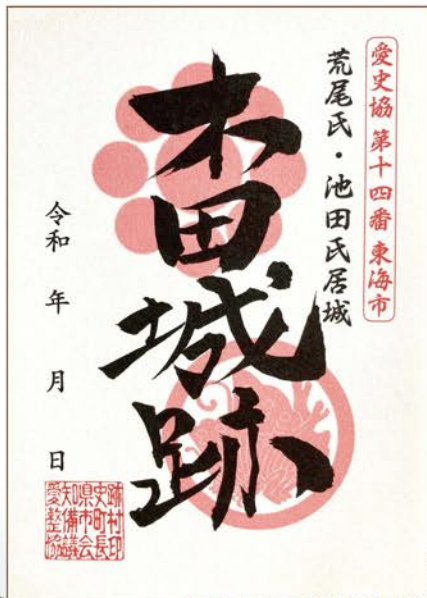 愛史協 第十四番 東海市
荒尾氏・池田氏居城
木田城跡
令和 年 月 日
愛知県史跡
整備市町村
協議会長印